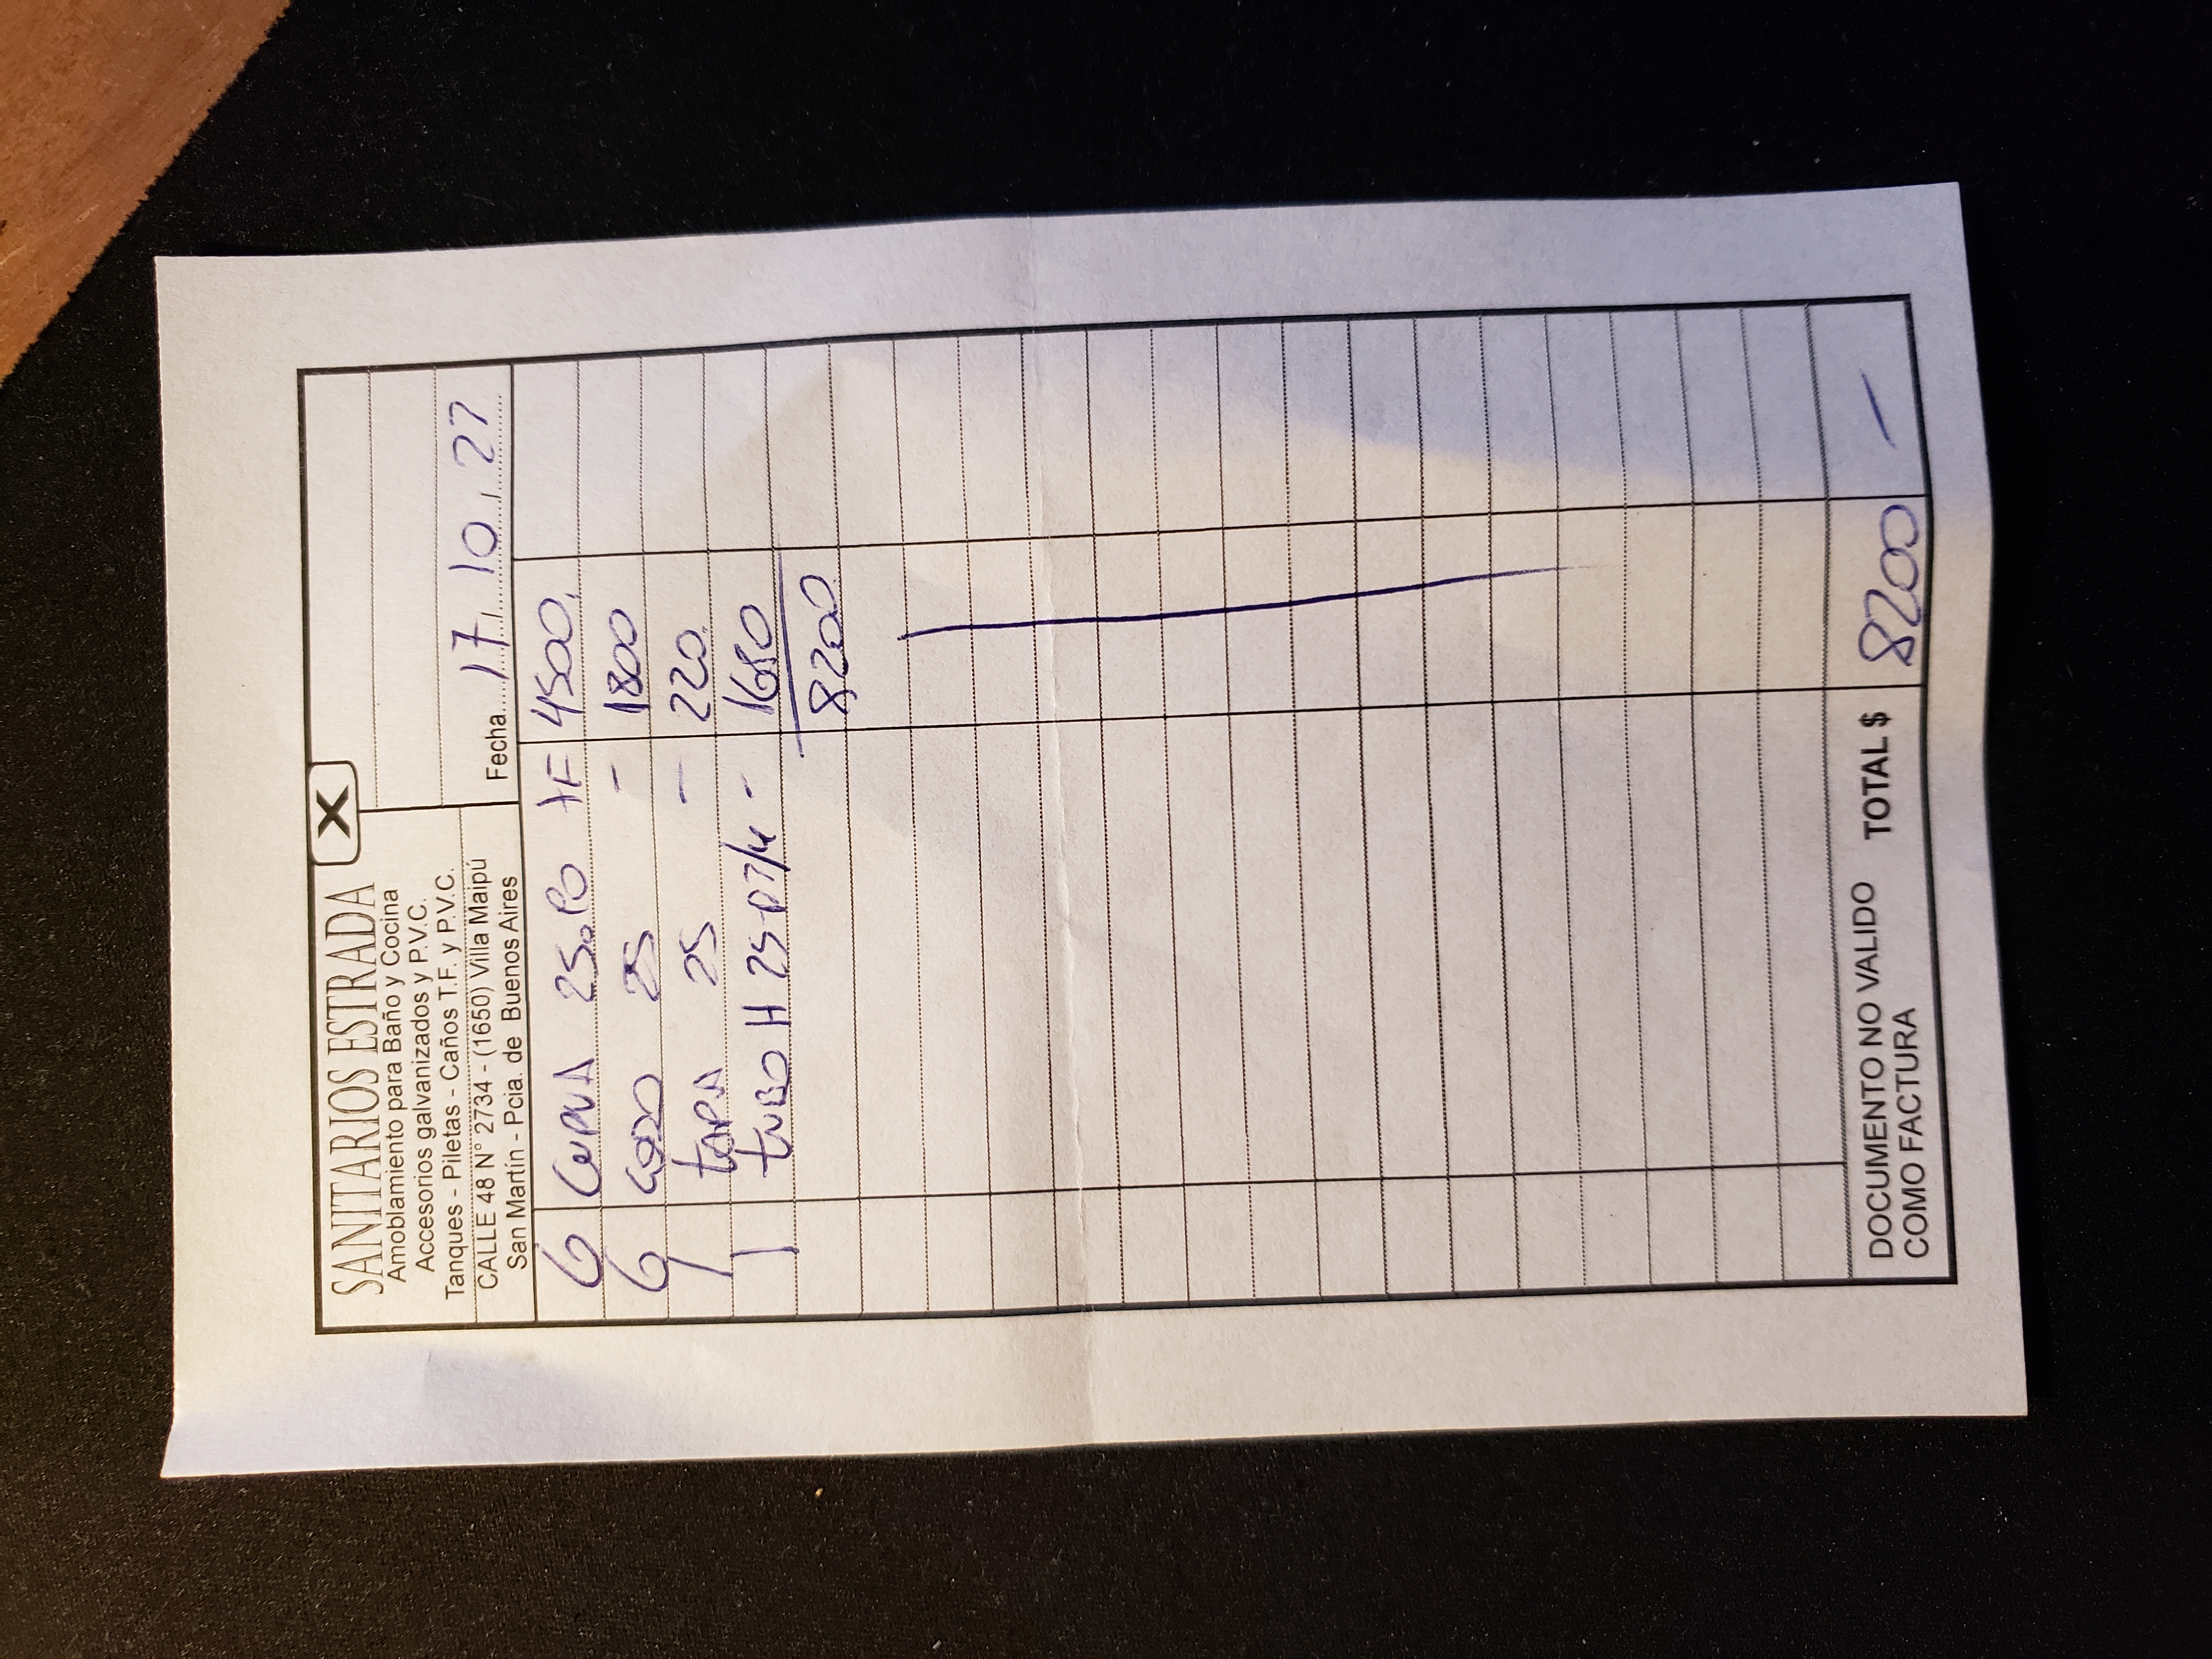 SANITARIOS ESTRADA
X
Amoblamiento para Baño y Cocina
Accesorios galvanizados y P.V.C.
Tanques - Piletas - Caños T.F. y P.V.C.
CALLE 48 N° 2734 - (1650) Villa Maipú
San Martín - Pcia. de Buenos Aires
Fecha 17, 10, 22
6 CURVA 25 TF 4500.
6 CODO 25 - 1800
1 TAPA 25 - 220.
1 TUBO H 25 3/4 - 1680
8200.
DOCUMENTO NO VALIDO
COMO FACTURA
TOTAL $ 8200 -